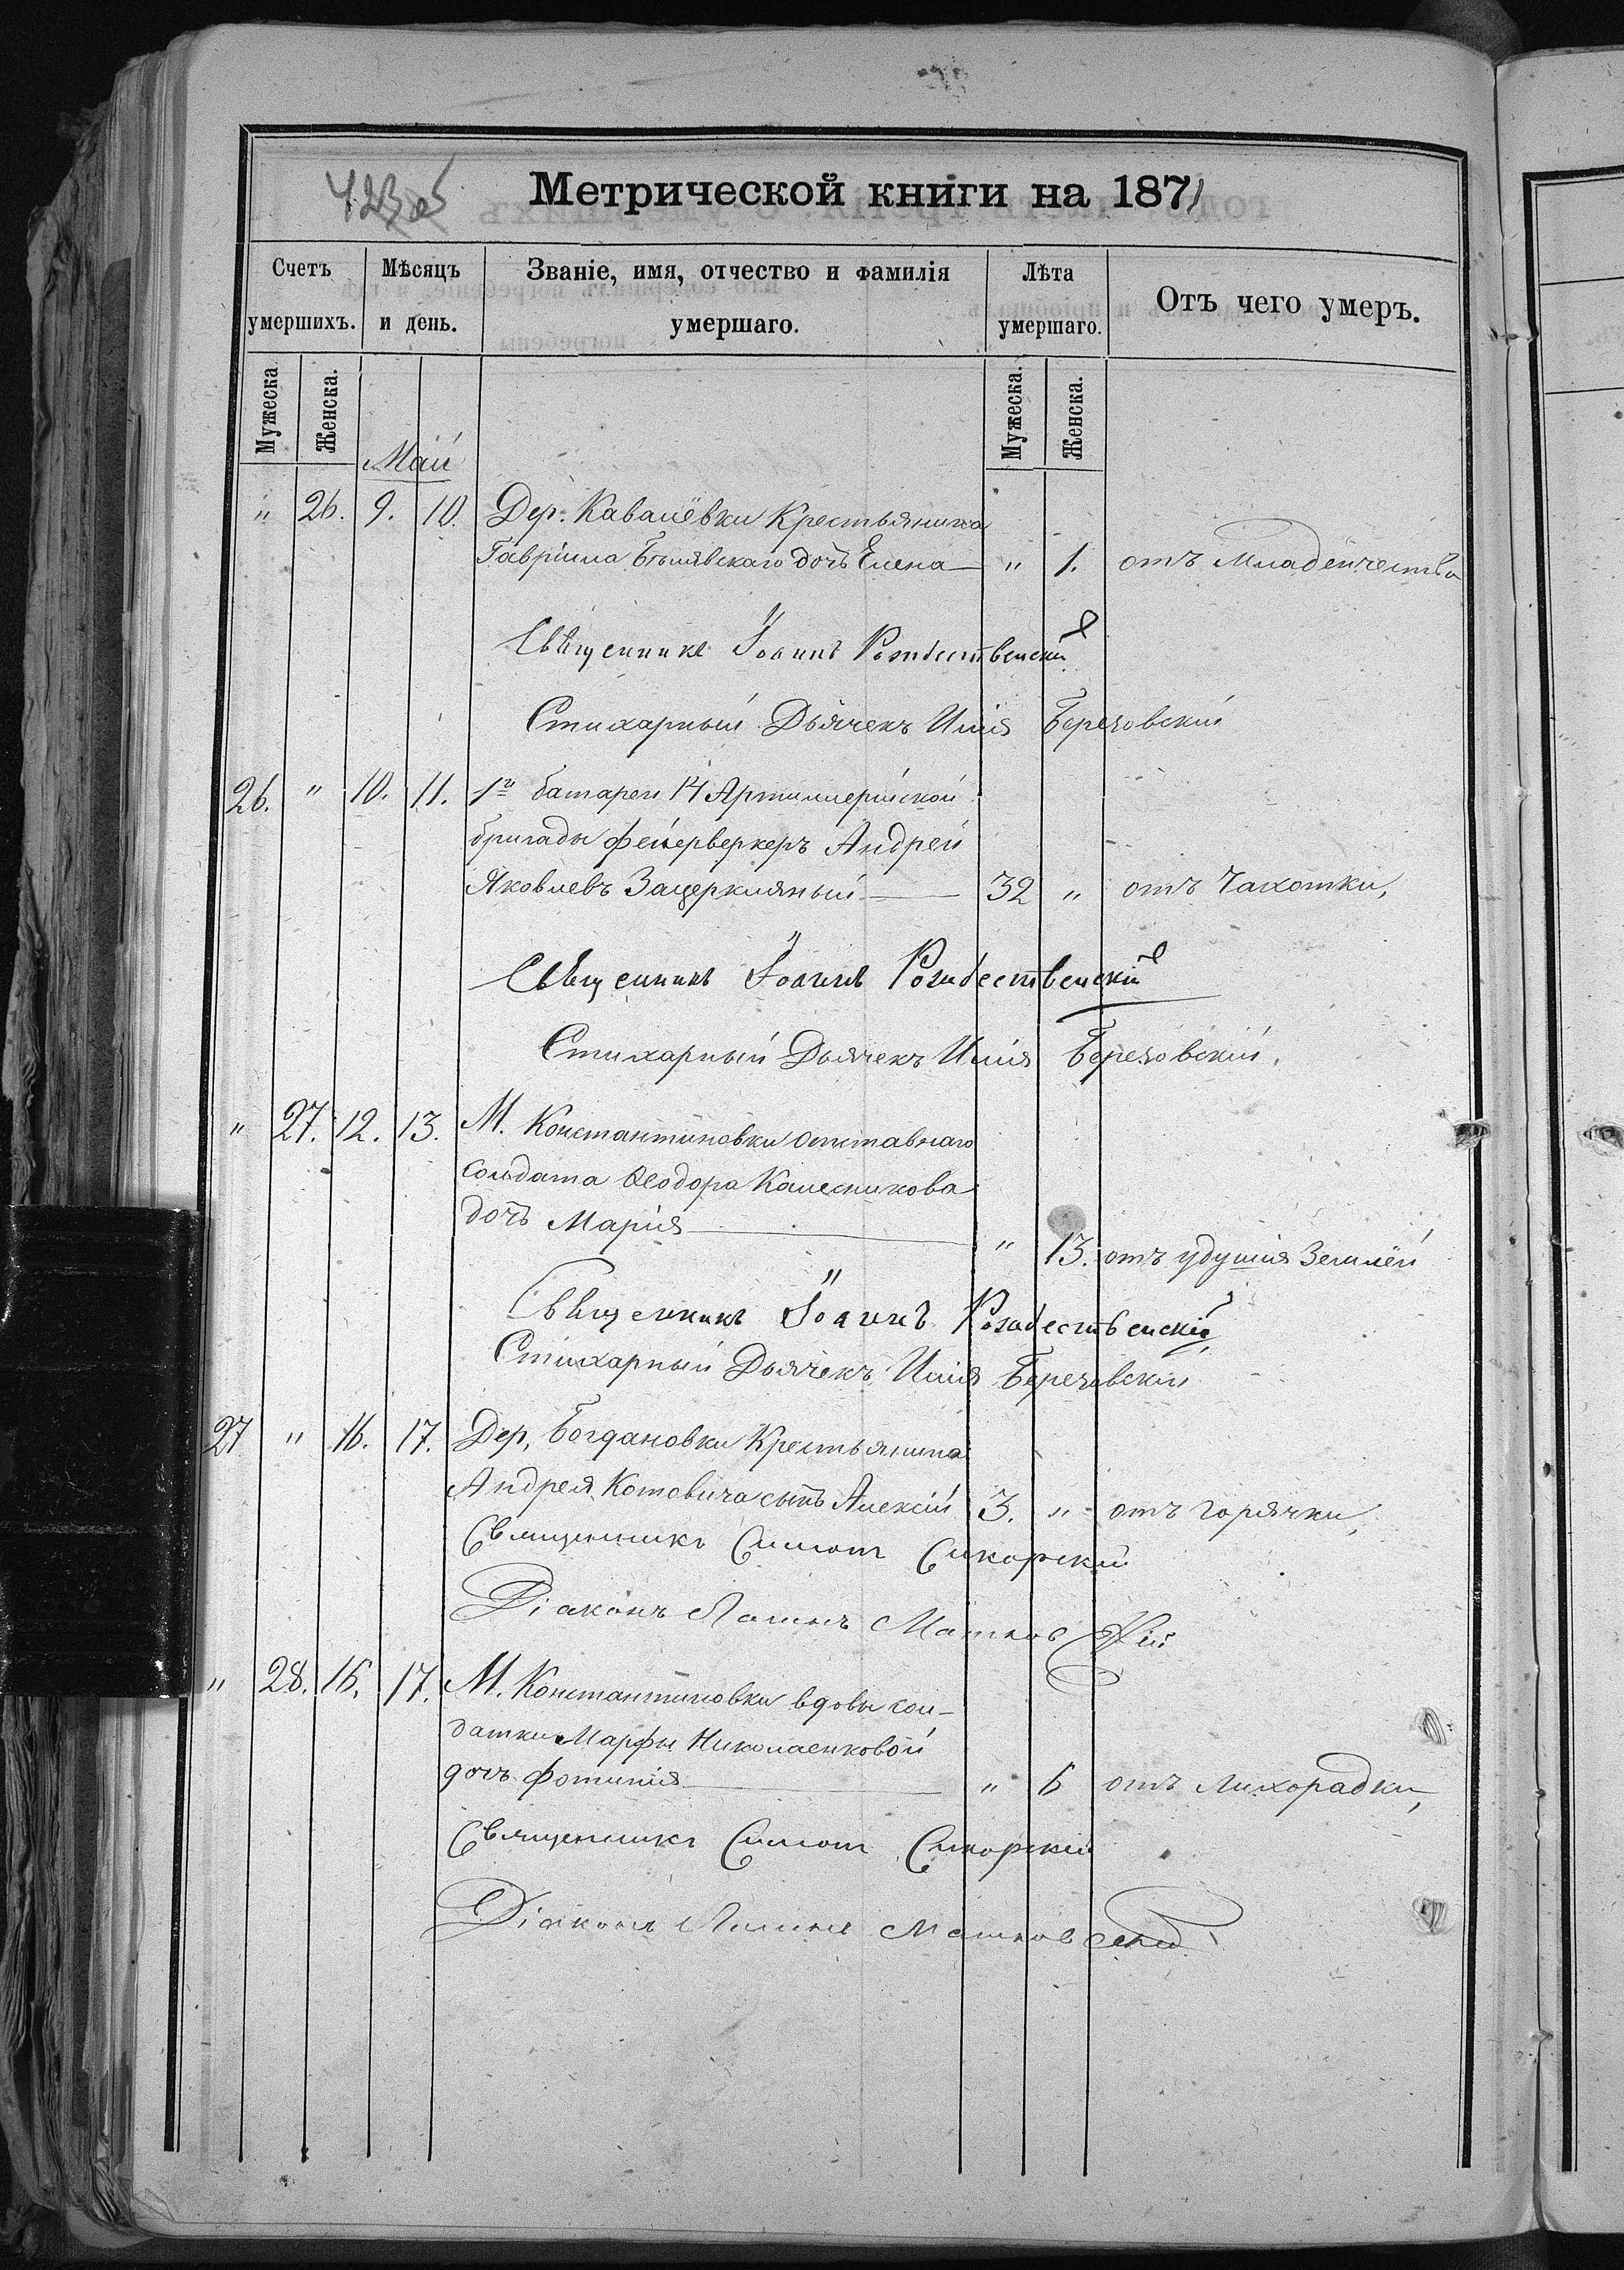 423об
Метрической книги на 1871
Счетъ умершихъ.
Мѣсяцъ и день.
Званіе, имя, отчество и фамилія умершаго.
Лѣта умершаго.
Отъ чего умеръ.
Мужеска.
Женска.
Мужеска.
Женска.
Май
" 26. 9. 10. Дер. Кавалёвки Крестьянина
Гавріила Бѣлявскаго дочь Елена — " 1. отъ Младенчества
Священникъ Іоаннъ Рождественскій
Стихарный Дьячекъ Илія Березовскій
26. " 10. 11. 1й батареи 14 Артиллерійской
бригады фейерверкеръ Андрей
Яковлевъ Зацеркляный — 32 " отъ Чахотки,
Священникъ Іоаннъ Рождественскій
Стихарный Дьячекъ Илія Березовскій.
" 27. 12. 13. М. Константиновки отставнаго
солдата Ѳеодора Калесникова
дочь Марія — " 13. отъ удушія Землёй
Священникъ Іоаннъ Рождественскій,
Стихарный Дьячекъ Илія Березовскій
27 " 16. 17. Дер. Богдановки Крестьянина
Андрея Котовича сынъ Алексій 3. " отъ горячки,
Священникъ Симонъ Сикорскій
Діаконъ
" 28. 16. 17. М. Константиновки вдовы сол-
датки Марфы Николаенковой
дочь Фотинія — " 6 отъ лихорадки,
Священникъ Симонъ Сикорскій
Діаконъ